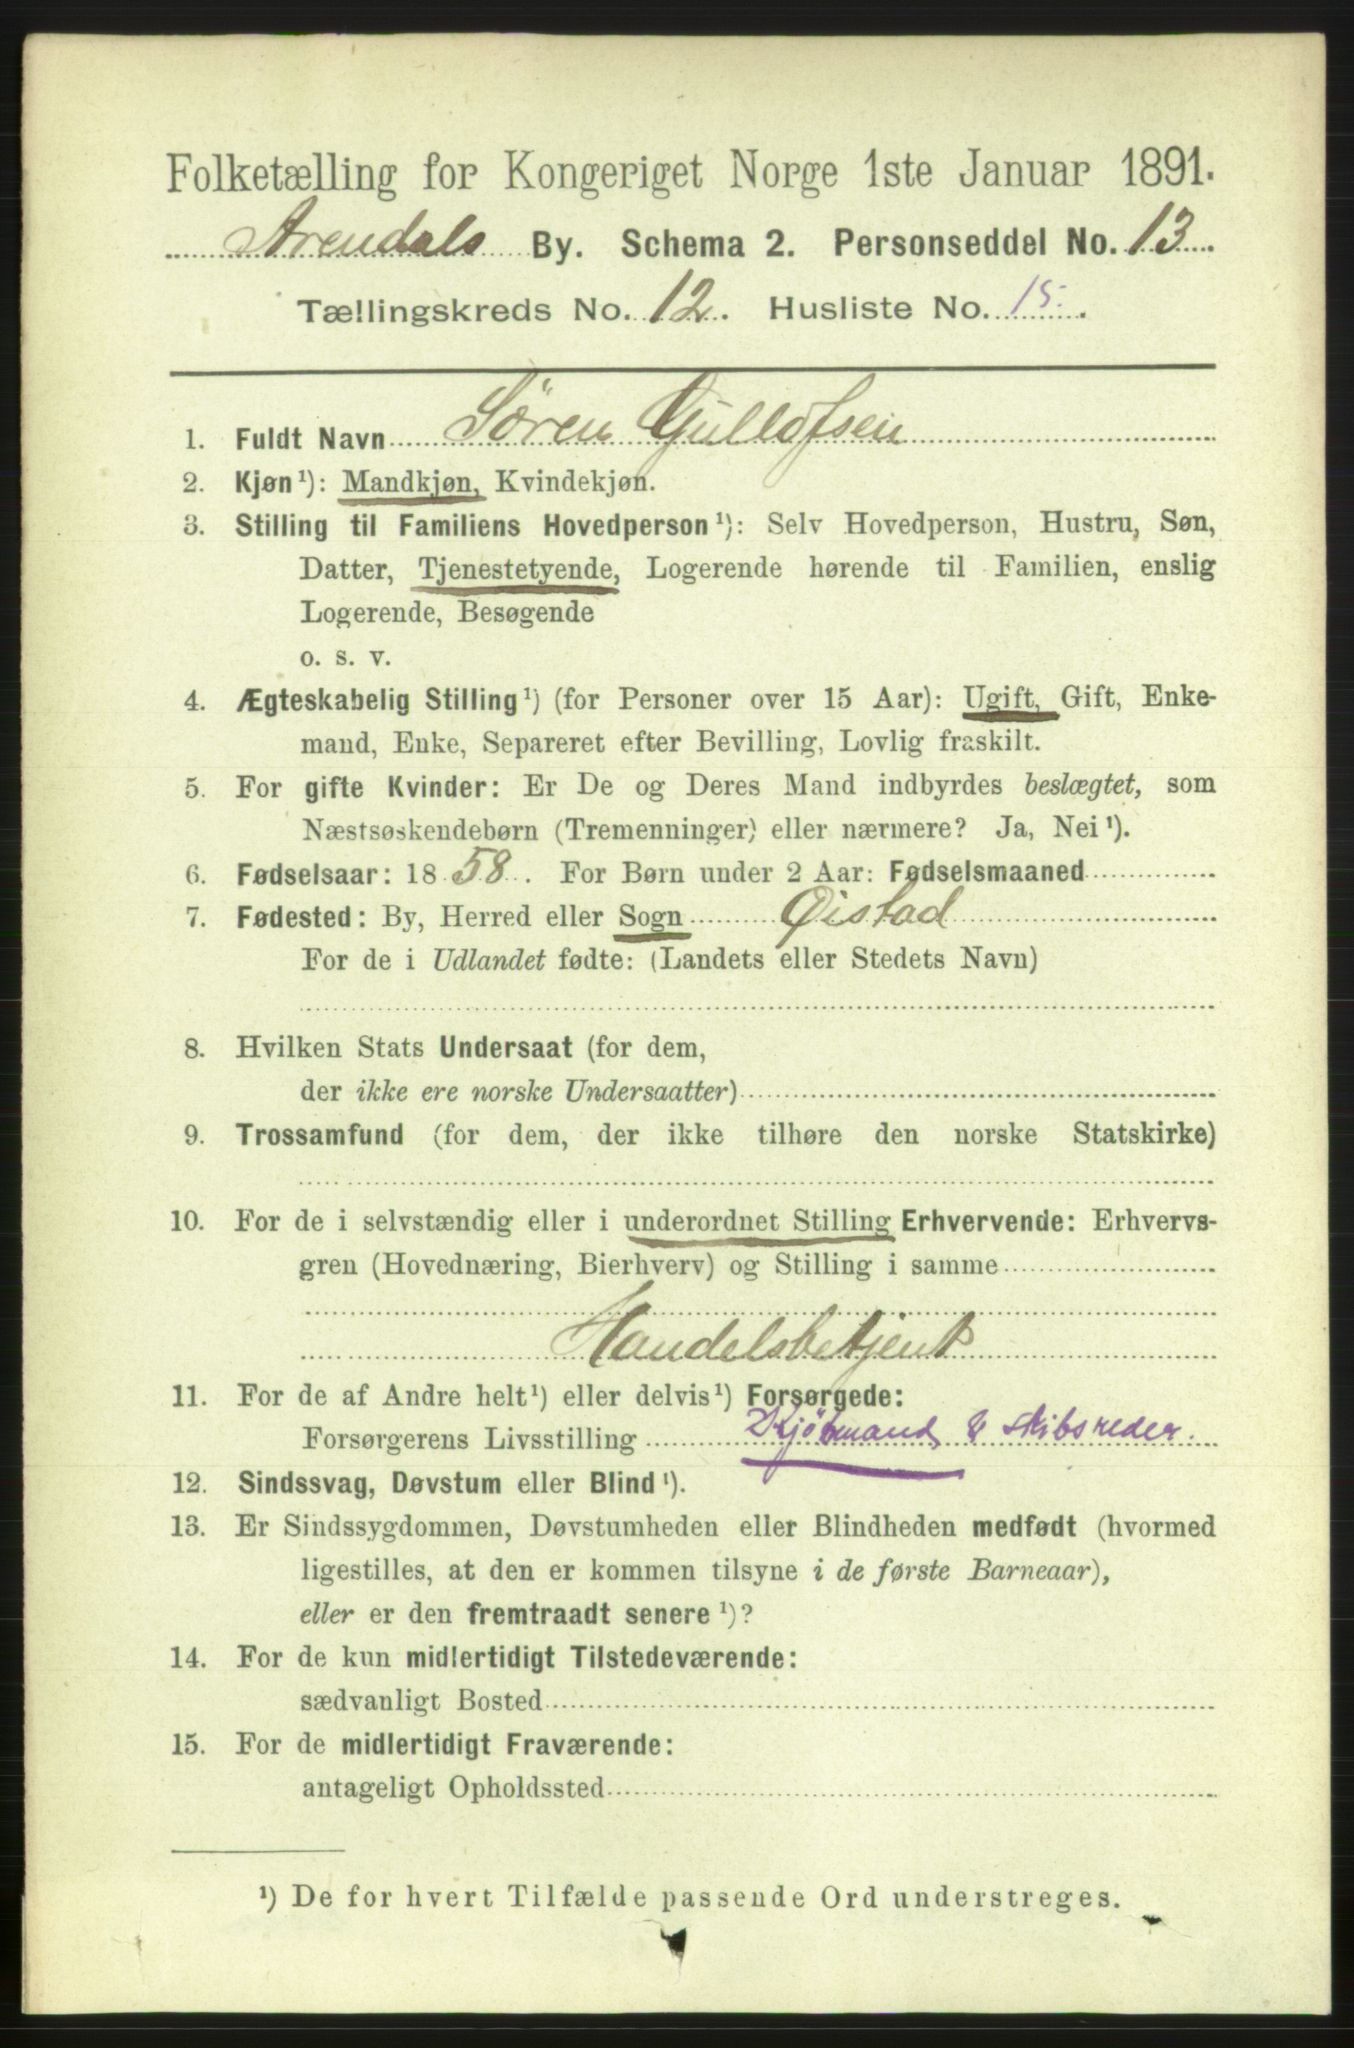 Folketælling for Kongeriget Norge 1ste Januar 1891.
Arendals By. Schema 2. Personseddel No. 13
Tællingskreds No. 12. Husliste No. 15.
1. Fuldt Navn Søren Gullofsen
2. Kjøn¹): Mandkjøn, Kvindekjøn.
3. Stilling til Familiens Hovedperson¹): Selv Hovedperson, Hustru, Søn,
Datter, Tjenestetyende, Logerende hørende til Familien, enslig
Logerende, Besøgende
o. s. v.
4. Ægteskabelig Stilling¹) (for Personer over 15 Aar): Ugift, Gift, Enke-
mand, Enke, Separeret efter Bevilling, Lovlig fraskilt.
5. For gifte Kvinder: Er De og Deres Mand indbyrdes beslægtet, som
Næstsøskendebørn (Tremenninger) eller nærmere? Ja, Nei¹).
6. Fødselsaar: 1858. For Børn under 2 Aar: Fødselsmaaned
7. Fødested: By, Herred eller Sogn Øistad
For de i Udlandet fødte: (Landets eller Stedets Navn)
8. Hvilken Stats Undersaat (for dem,
der ikke ere norske Undersaatter)
9. Trossamfund (for dem, der ikke tilhøre den norske Statskirke)
10. For de i selvstændig eller i underordnet Stilling Erhvervende: Erhvervs-
gren (Hovednæring, Bierhverv) og Stilling i samme
Handelsbetjent
11. For de af Andre helt¹) eller delvis¹) Forsørgede:
Forsørgerens Livsstilling Kjöbmand & Skibsreder.
12. Sindssvag, Døvstum eller Blind¹).
13. Er Sindssygdommen, Døvstumheden eller Blindheden medfødt (hvormed
ligestilles, at den er kommen tilsyne i de første Barneaar),
eller er den fremtraadt senere¹)?
14. For de kun midlertidigt Tilstedeværende:
sædvanligt Bosted
15. For de midlertidigt Fraværende:
antageligt Opholdssted
¹) De for hvert Tilfælde passende Ord understreges.